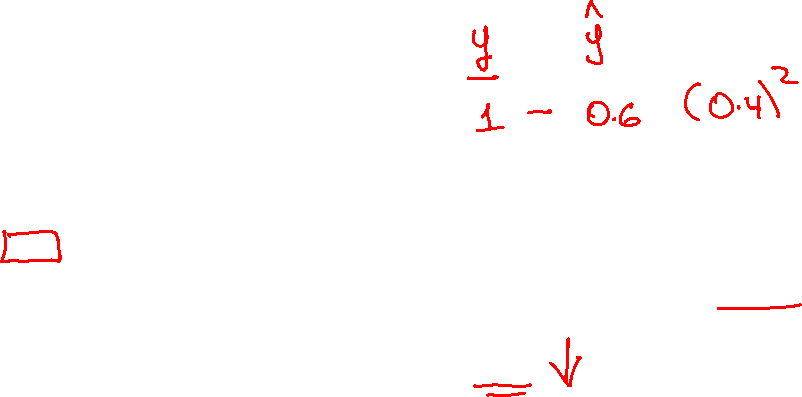 y ŷ
1 - 0.6 (0.4)²